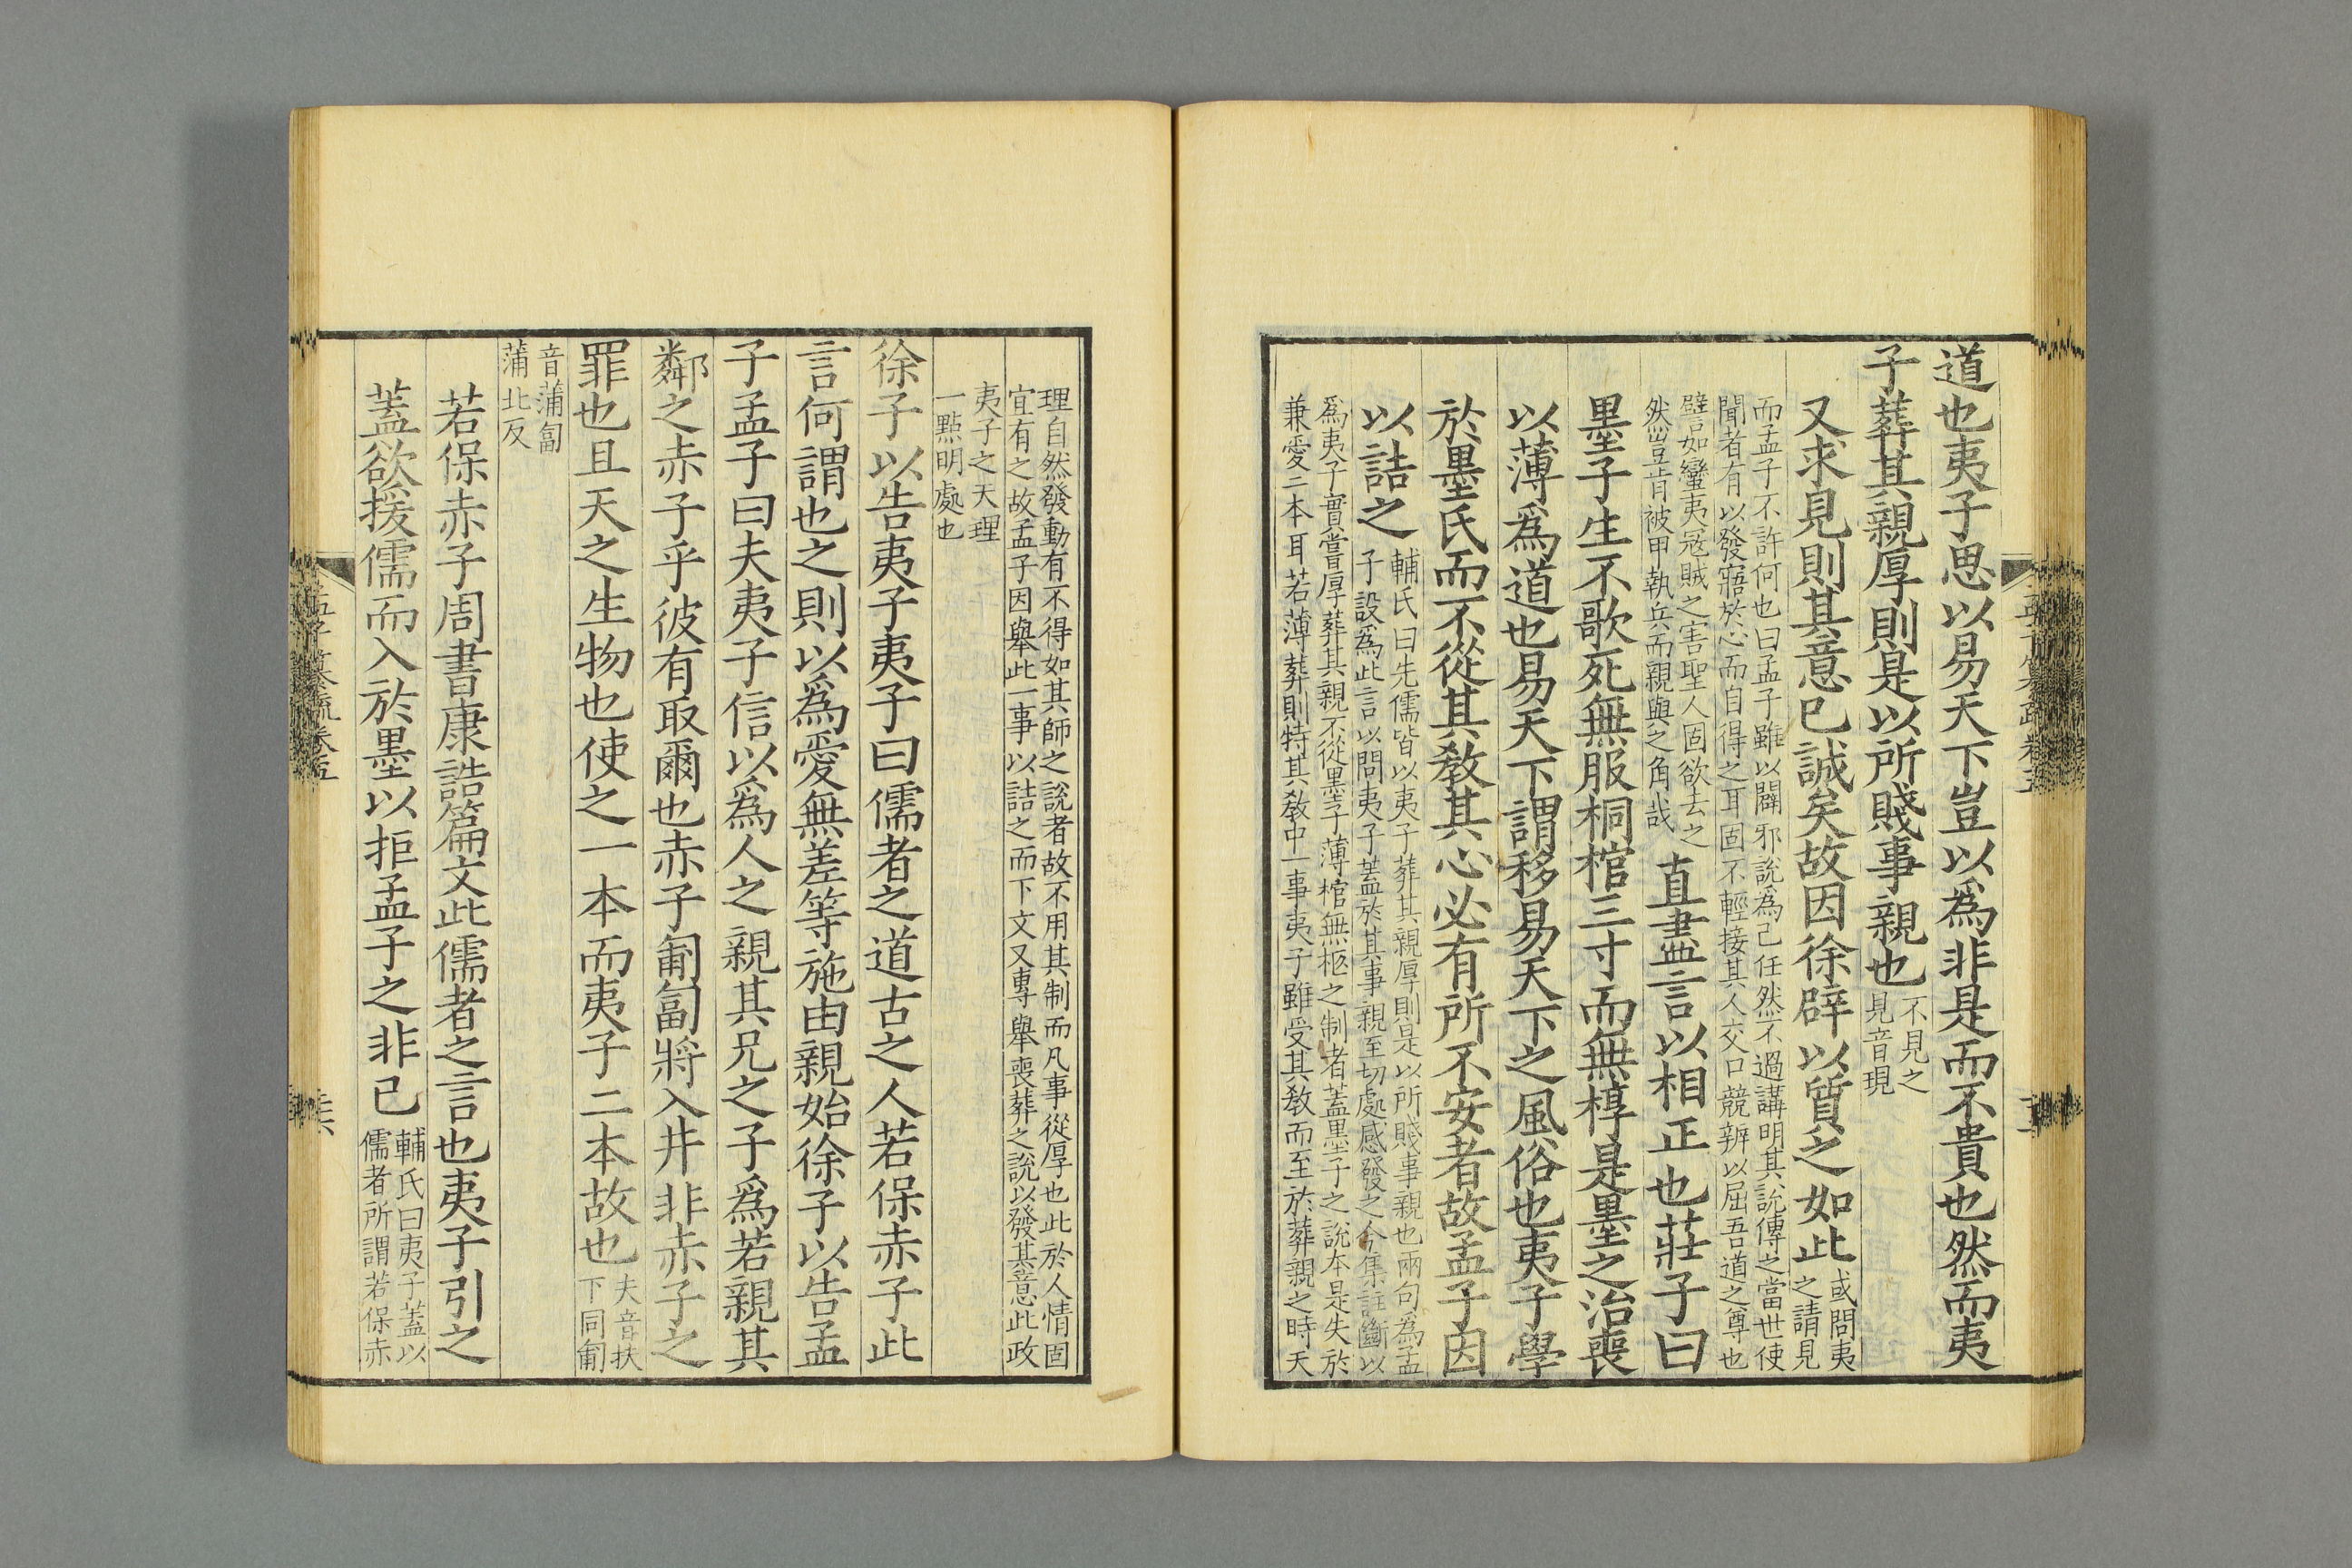 道也夷子思以易天下豈以為非是而不貴也然而夷
子葬其親厚則是以所賤事親也
不見之
見音現
又求見則其意已誠矣故因徐辟以質之如此
或問夷
之請見
而孟子不許何也曰孟子雖以闢邪說為己任然不過講明其說傳之當世使
聞者有以發寤於心而自得之耳固不輕接其人交口競辨以屈吾道之尊也
譬如蠻夷冦賊之害聖人固欲去之
然豈肯被甲執兵而親與之角哉
直盡言以相正也莊子曰
墨子生不歌死無服桐棺三寸而無槨是墨之治喪
以薄為道也易天下謂移易天下之風俗也夷子學
於墨氏而不從其教其心必有所不安者故孟子因
以詰之
輔氏曰先儒皆以夷子葬其親厚則是以所賤事親也兩句為孟
子設為此言以問夷子葢於其事親至切處感發之今集註斷以
為夷子實嘗厚葬其親不從墨子薄棺無柩之制者蓋墨子之說本是失於
兼愛二本耳若薄葬則特其教中一事夷子雖受其教而至於葬親之時天
理自然發動有不得如其師之說者故不用其制而凡事從厚也此於人情固
宜有之故孟子因舉此一事以詰之而下文又專舉喪葬之說以發其意此政
夷子之天理
一點明處也
徐子以告夷子夷子曰儒者之道古之人若保赤子此
言何謂也之則以為愛無差等施由親始徐子以告孟
子孟子曰夫夷子信以為人之親其兄之子為若親其
鄰之赤子乎彼有取爾也赤子匍匐將入井非赤子之
罪也且天之生物也使之一本而夷子二本故也
夫音扶
下同匍
音蒲匐
蒲北反
若保赤子周書康誥篇文此儒者之言也夷子引之
蓋欲援儒而入於墨以拒孟子之非己
輔氏曰夷子蓋以
儒者所謂若保赤